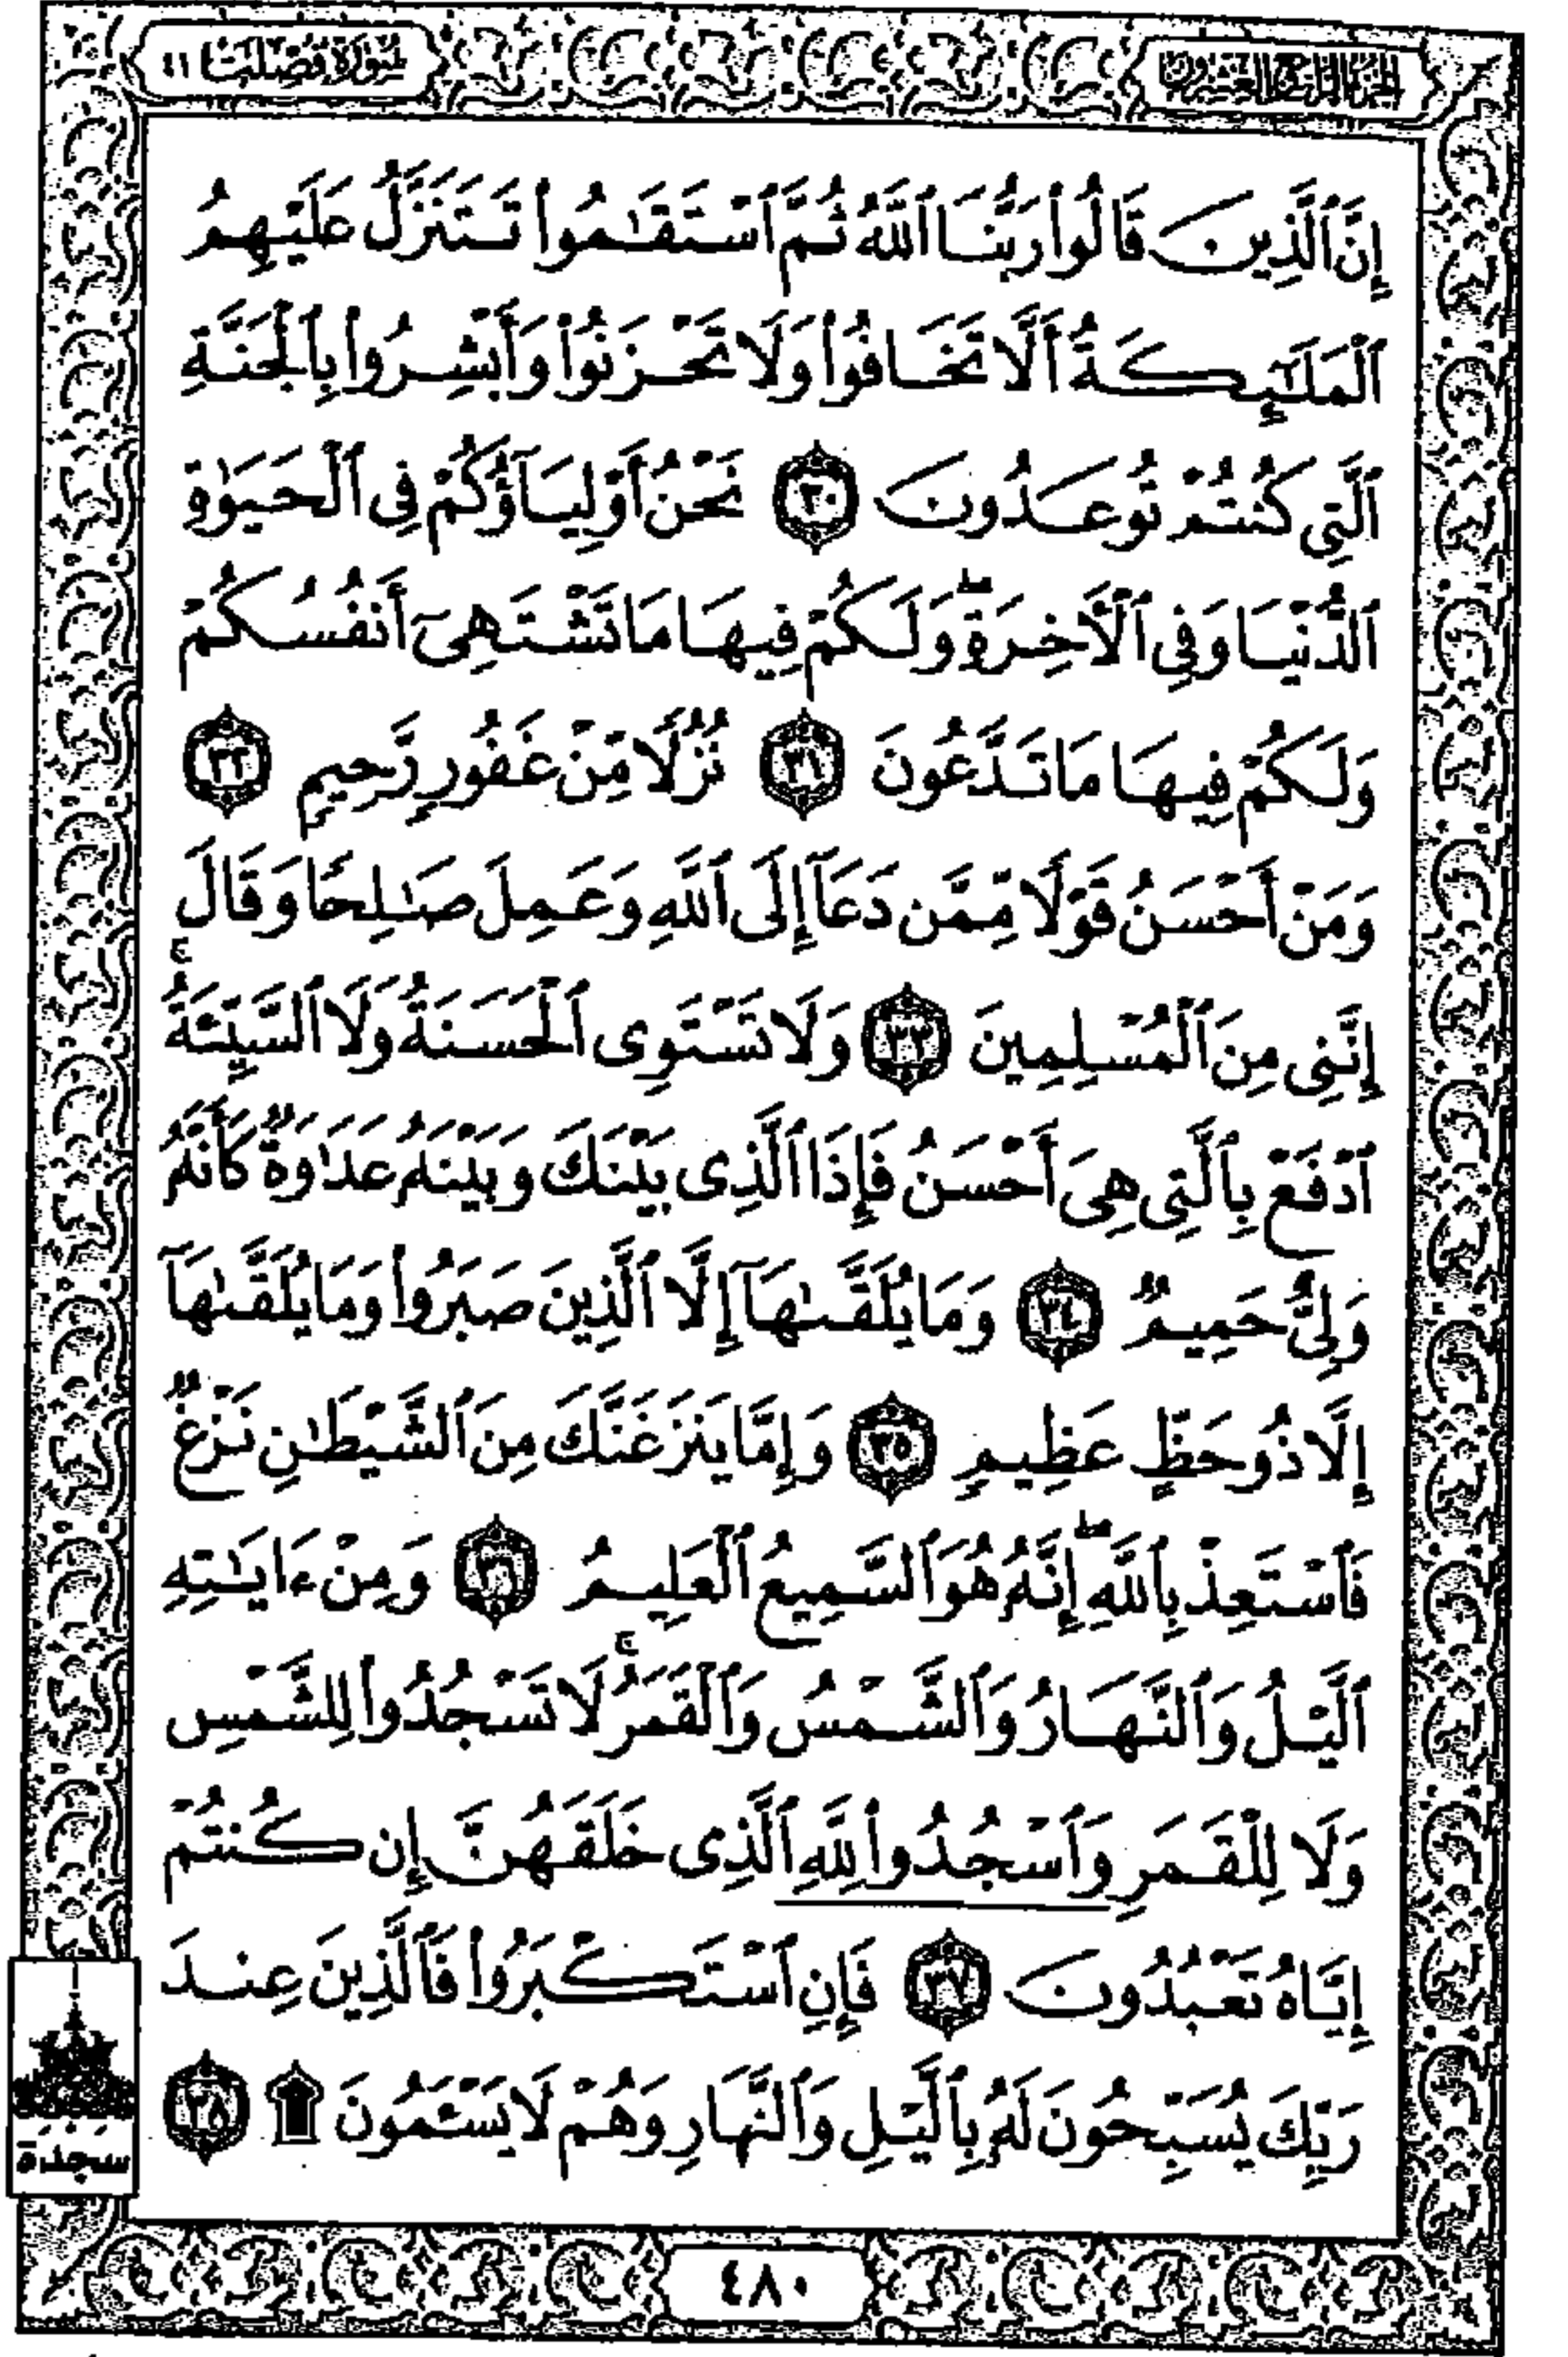 الجزء الرابع والعشرون
سورة فصلت ٤١
إِنَّ ٱلَّذِينَ قَالُوا۟ رَبُّنَا ٱللَّهُ ثُمَّ ٱسْتَقَـٰمُوا۟ تَتَنَزَّلُ عَلَيْهِمُ
ٱلْمَلَـٰٓئِكَةُ أَلَّا تَخَافُوا۟ وَلَا تَحْزَنُوا۟ وَأَبْشِرُوا۟ بِٱلْجَنَّةِ
ٱلَّتِى كُنتُمْ تُوعَدُونَ ٣٠ نَحْنُ أَوْلِيَآؤُكُمْ فِى ٱلْحَيَوٰةِ
ٱلدُّنْيَا وَفِى ٱلْأَخِرَةِ ۖ وَلَكُمْ فِيهَا مَا تَشْتَهِىٓ أَنفُسُكُمْ
وَلَكُمْ فِيهَا مَا تَدَّعُونَ ٣١ نُزُلًا مِّنْ غَفُورٍ رَّحِيمٍ ٣٢
وَمَنْ أَحْسَنُ قَوْلًا مِّمَّن دَعَآ إِلَى ٱللَّهِ وَعَمِلَ صَـٰلِحًا وَقَالَ
إِنَّنِى مِنَ ٱلْمُسْلِمِينَ ٣٣ وَلَا تَسْتَوِى ٱلْحَسَنَةُ وَلَا ٱلسَّيِّئَةُ ۚ
ٱدْفَعْ بِٱلَّتِى هِىَ أَحْسَنُ فَإِذَا ٱلَّذِى بَيْنَكَ وَبَيْنَهُۥ عَدَٰوَةٌ كَأَنَّهُۥ
وَلِىٌّ حَمِيمٌ ٣٤ وَمَا يُلَقَّىٰهَآ إِلَّا ٱلَّذِينَ صَبَرُوا۟ وَمَا يُلَقَّىٰهَآ
إِلَّا ذُو حَظٍّ عَظِيمٍ ٣٥ وَإِمَّا يَنزَغَنَّكَ مِنَ ٱلشَّيْطَـٰنِ نَزْغٌ
فَٱسْتَعِذْ بِٱللَّهِ ۖ إِنَّهُۥ هُوَ ٱلسَّمِيعُ ٱلْعَلِيمُ ٣٦ وَمِنْ ءَايَـٰتِهِ
ٱلَّيْلُ وَٱلنَّهَارُ وَٱلشَّمْسُ وَٱلْقَمَرُ ۚ لَا تَسْجُدُوا۟ لِلشَّمْسِ
وَلَا لِلْقَمَرِ وَٱسْجُدُوا۟ لِلَّهِ ٱلَّذِى خَلَقَهُنَّ إِن كُنتُمْ
إِيَّاهُ تَعْبُدُونَ ٣٧ فَإِنِ ٱسْتَكْبَرُوا۟ فَٱلَّذِينَ عِندَ
رَبِّكَ يُسَبِّحُونَ لَهُۥ بِٱلَّيْلِ وَٱلنَّهَارِ وَهُمْ لَا يَسْـَٔمُونَ ۩ ٣٨
سجدة
٤٨٠